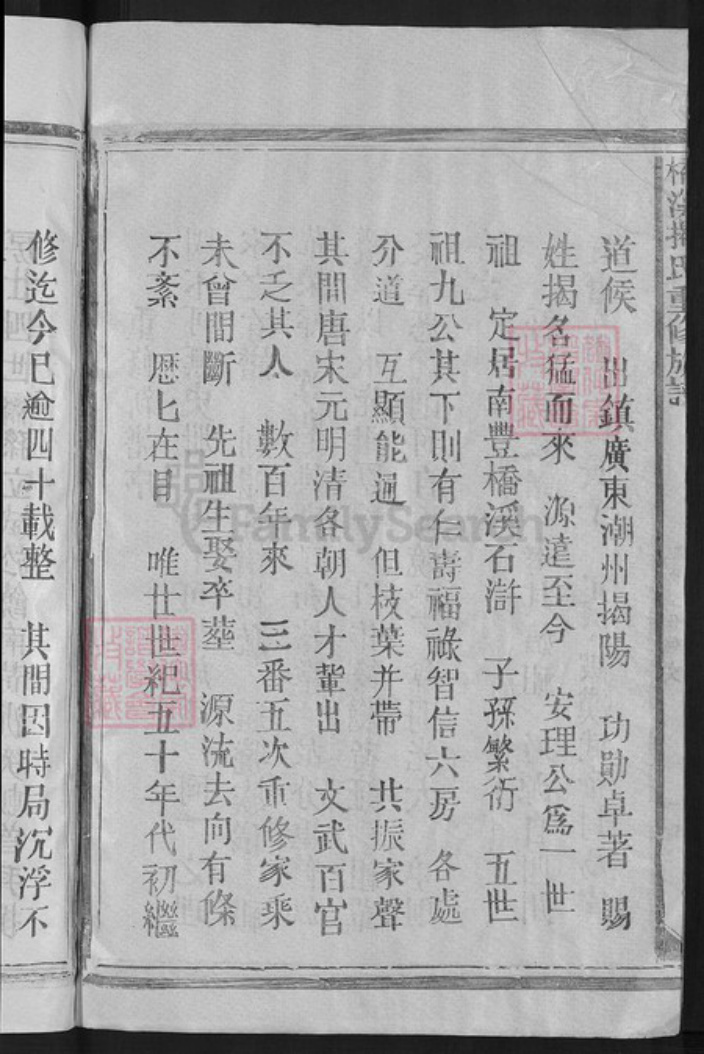 橋溪揭氏重修族譜
道侯　出鎮廣東潮州揭陽　功勛卓著　賜
姓揭名猛而來　源遠至今　安理公爲一世
祖　定居南豐橋溪石滸　子孫繁衍　五世
祖九公其下則有仁壽福祿智信六房　各處
分道　互顯能通　但枝葉并帶　共振家聲
其間唐宋元明清各朝人才輩出　文武百官
不乏其人　數百年來　三番五次重修家乘
未曾間斷　先祖生娶卒塟　源流去向有條
不紊　歷匕在目　唯廿世紀五十年代初繼
修迄今已逾四十載整　其間因時局沉浮不
FamilySearch